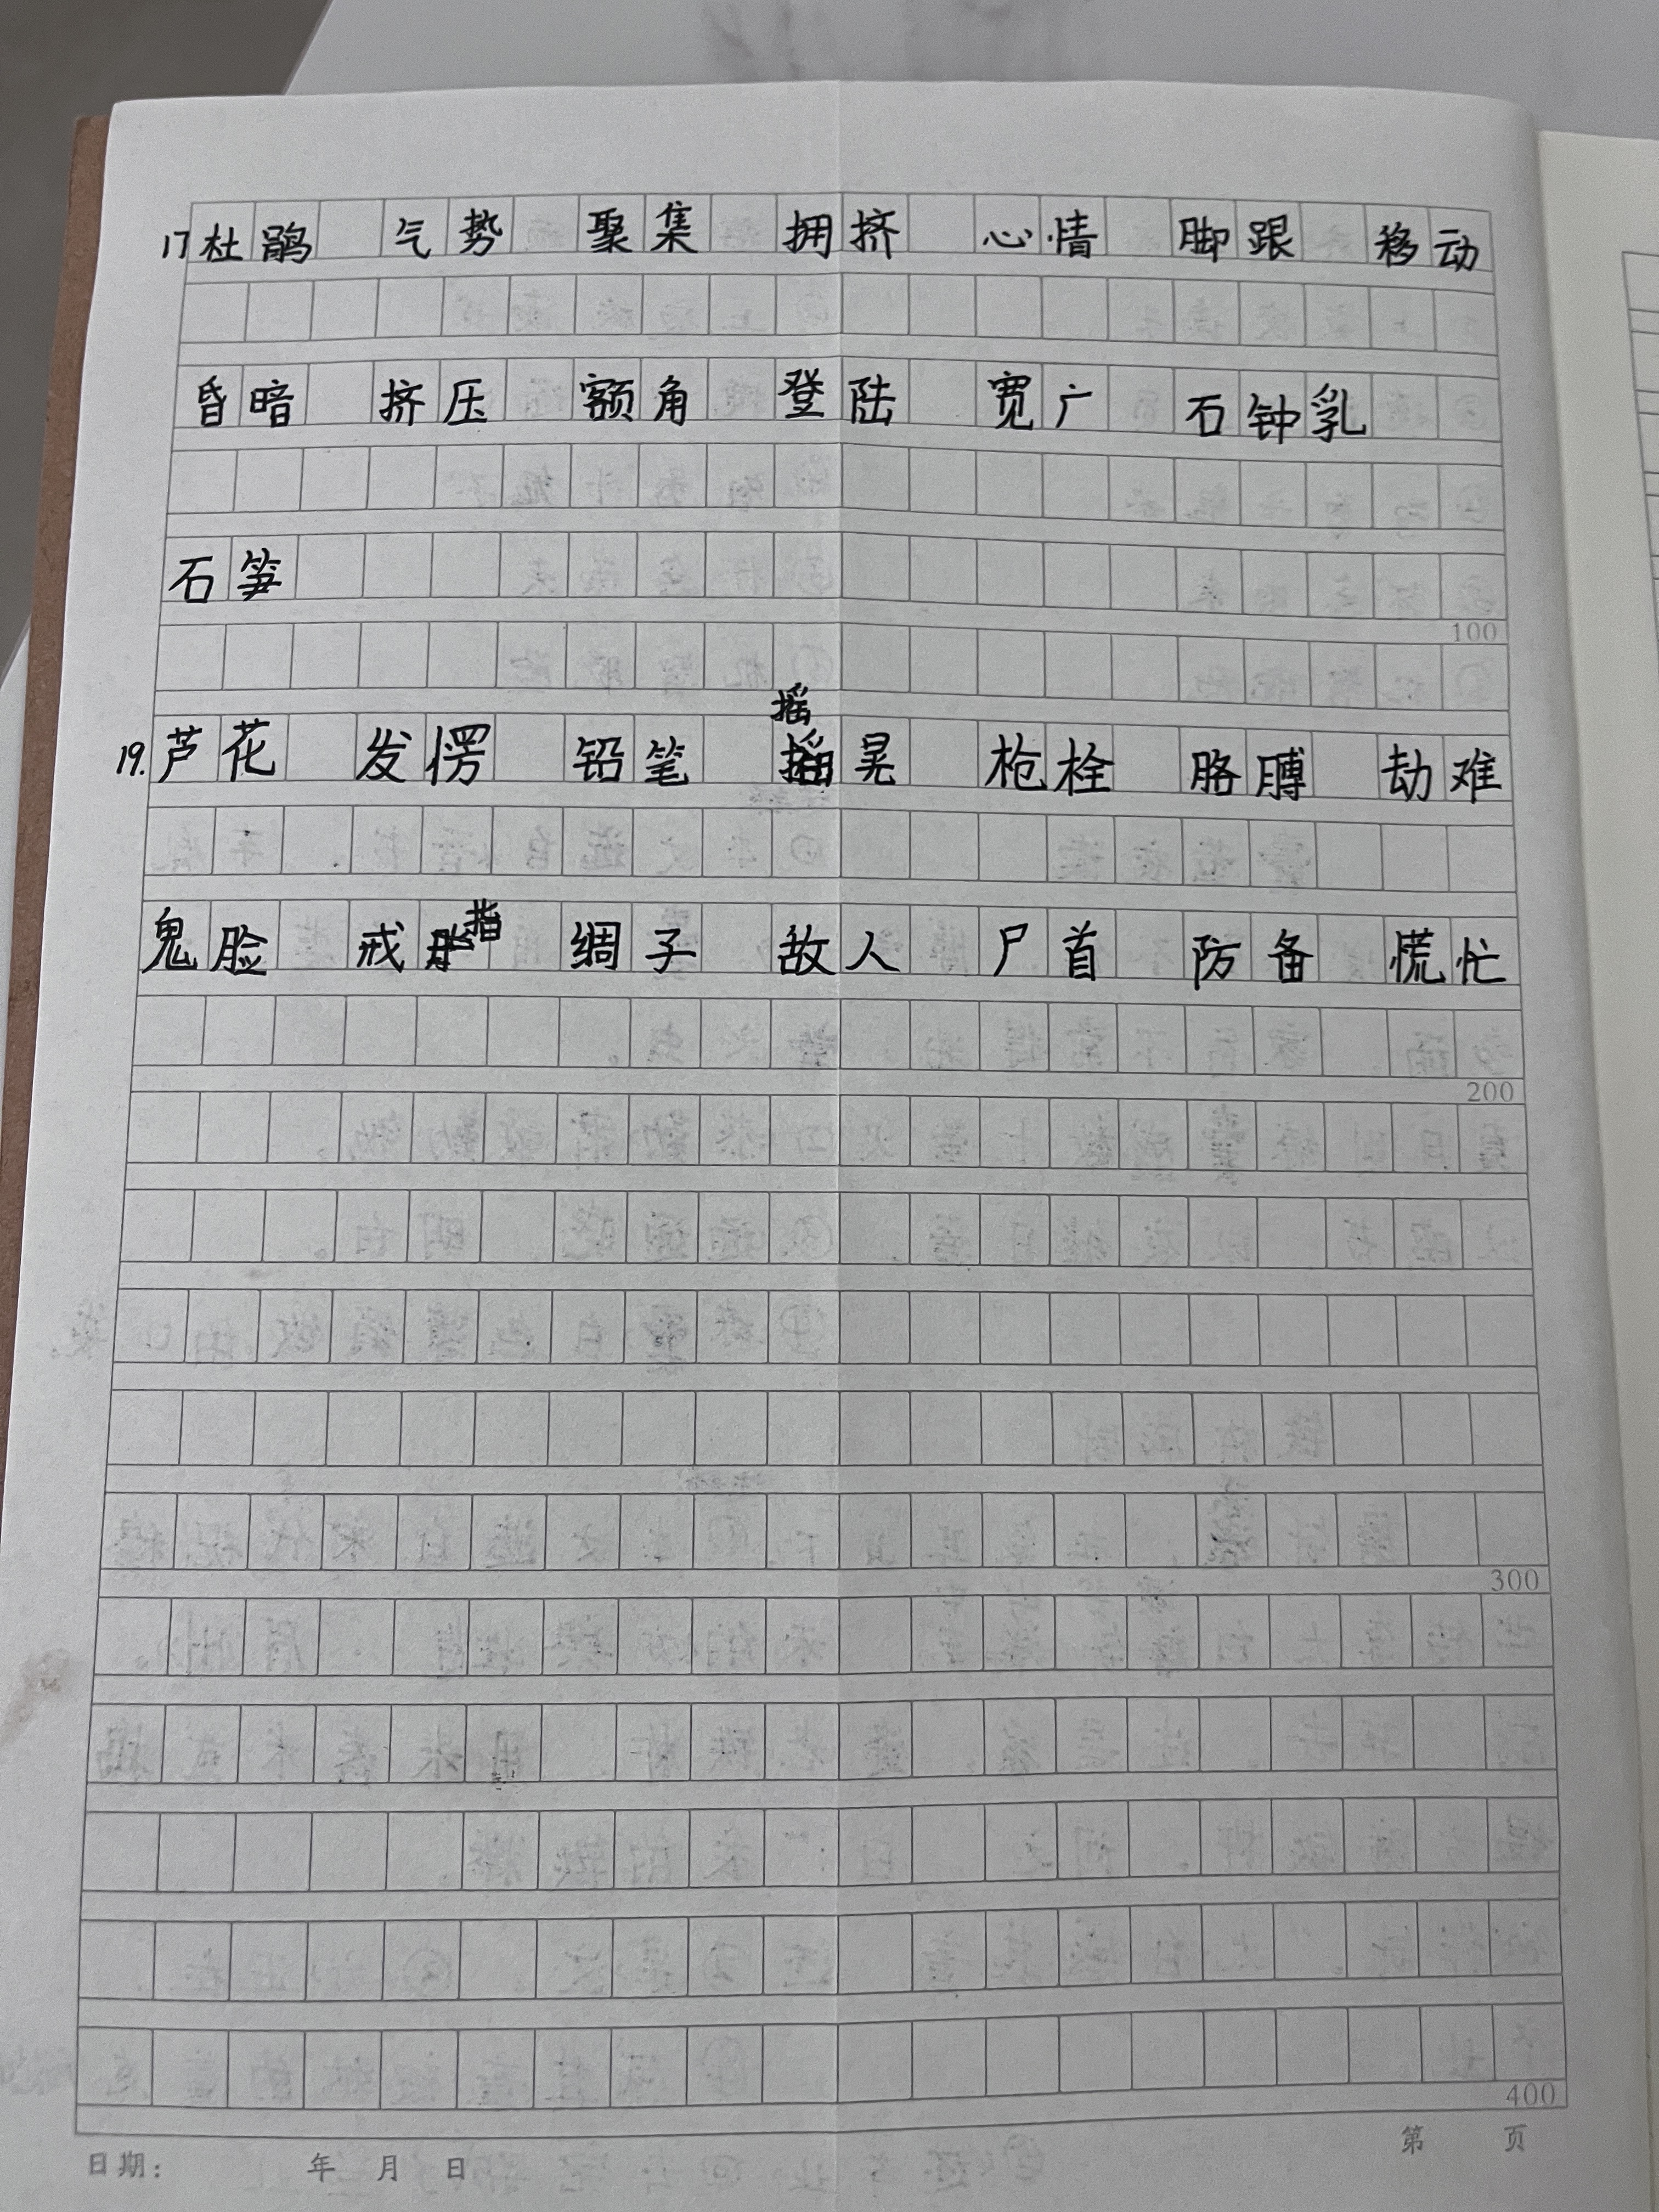 17 杜鹃 气势 聚集 拥挤 心情 脚跟 移动
昏暗 挤压 额角 登陆 宽广 石钟乳
石笋
100
摇
19. 芦花 发愣 铅笔 晃 枪栓 胳膊 劫难
鬼脸 戒指 绸子 故人 尸首 防备 慌忙
200
300
400
第 页
日期: 年 月 日